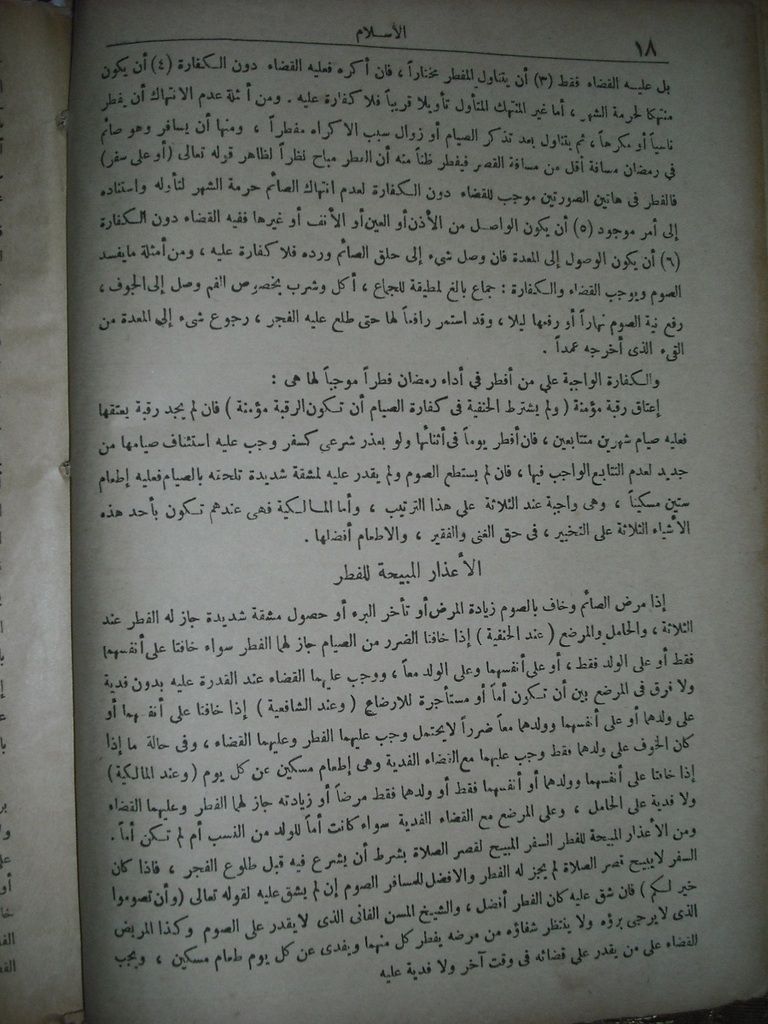 الأسلام
١٨
بل عليه القضاء فقط (٣) أن يتناول المفطر مختاراً ، فان أكره فعليه القضاء دون الكفارة (٤) أن يكون
منتهكا لحرمة الشهر ، أما غير المنتهك المتأول تأويلا قريباً فلا كفارة عليه . ومن أمثلة عدم الانتهاك أن يفطر
ناسياً أو مكرهاً ، ثم يتناول بعد تذكر الصيام أو زوال سبب الاكراه مفطراً ، ومنها أن يسافر وهو صائم
في رمضان مسافة أقل من مسافة القصر فيفطر ظناً منه أن الفطر مباح نظراً لظاهر قوله تعالى (أو على سفر)
فالفطر فى هاتين الصورتين موجب للقضاء دون الكفارة لعدم انتهاك الصائم حرمة الشهر لتأوله واستناده
إلى أمر موجود (٥) أن يكون الواصل من الأذن أو العين أو الأنف أو غيرها ففيه القضاء دون الكفارة
(٦) أن يكون الوصول إلى المعدة فان وصل شىء إلى حلق الصائم ورده فلا كفارة عليه ، ومن أمثلة مايفسد
الصوم ويوجب القضاء والكفارة : جماع بالغ لمطيقة للجماع ، أكل وشرب بخصوص الفم وصل إلى الجوف ،
رفع نية الصوم نهاراً أو رفعها ليلا ، وقد استمر رافعاً لها حتى طلع عليه الفجر ، رجوع شىء إلى المعدة من
القىء الذى أخرجه عمداً .
والكفارة الواجبة على من أفطر في أداء رمضان فطراً موجباً لها هى :
إعتاق رقبة مؤمنة ( ولم يشترط الحنفية فى كفارة الصيام أن تكون الرقبة مؤمنة ) فان لم يجد رقبة يعتقها
فعليه صيام شهرين متتابعين ، فان أفطر يوماً فى أثنائها ولو بعذر شرعى كسفر وجب عليه استئناف صيامها من
جديد لعدم التتابع الواجب فيها ، فان لم يستطع الصوم ولم يقدر عليه لمشقة شديدة تلحقه بالصيام فعليه إطعام
ستين مسكيناً ، وهى واجبة عند الثلاثة على هذا الترتيب ، وأما المالكية فهى عندهم تكون بأحد هذه
الأشياء الثلاثة على التخيير ، فى حق الغنى والفقير ، والاطعام أفضلها .
الأعذار المبيحة للفطر
إذا مرض الصائم وخاف بالصوم زيادة المرض أو تأخر البرء أو حصول مشقة شديدة جاز له الفطر عند
الثلاثة ، والحامل والمرضع ( عند الحنفية ) إذا خافتا الضرر من الصيام جاز لهما الفطر سواء خافتا على أنفسهما
فقط أو على الولد فقط ، أو على أنفسهما وعلى الولد معاً ، ووجب عليهما القضاء عند القدرة عليه بدون فدية
ولا فرق فى المرضع بين أن تكون أماً أو مستأجرة للارضاع ( وعند الشافعية ) إذا خافتا على أنفسهما أو
على ولدهما أو على أنفسهما وولدهما معاً ضرراً لايحتمل وجب عليهما الفطر وعليهما القضاء ، وفى حالة ما إذا
كان الخوف على ولدهما فقط وجب عليهما مع القضاء الفدية وهى إطعام مسكين عن كل يوم ( وعند المالكية )
إذا خافتا على أنفسهما وولدهما أو أنفسهما فقط أو ولدهما فقط مرضاً أو زيادته جاز لهما الفطر وعليهما القضاء
ولا فدية على الحامل ، وعلى المرضع مع القضاء الفدية سواء كانت أماً للولد من النسب أم لم تكن أماً .
ومن الأعذار المبيحة للفطر السفر المبيح لقصر الصلاة بشرط أن يشرع فيه قبل طلوع الفجر ، فاذا كان
السفر لايبيح قصر الصلاة لم يجز له الفطر والافضل للمسافر الصوم إن لم يشق عليه لقوله تعالى (وأن تصوموا
خير لكم) فان شق عليه كان الفطر أفضل ، والشيخ المسن الفانى الذى لايقدر على الصوم وكذا المريض
الذى لايرجى برؤه ولا ينتظر شفاؤه من مرضه يفطر كل منهما ويفدى عن كل يوم طعام مسكين ، ويجب
القضاء على من يقدر على قضائه فى وقت آخر ولا فدية عليه